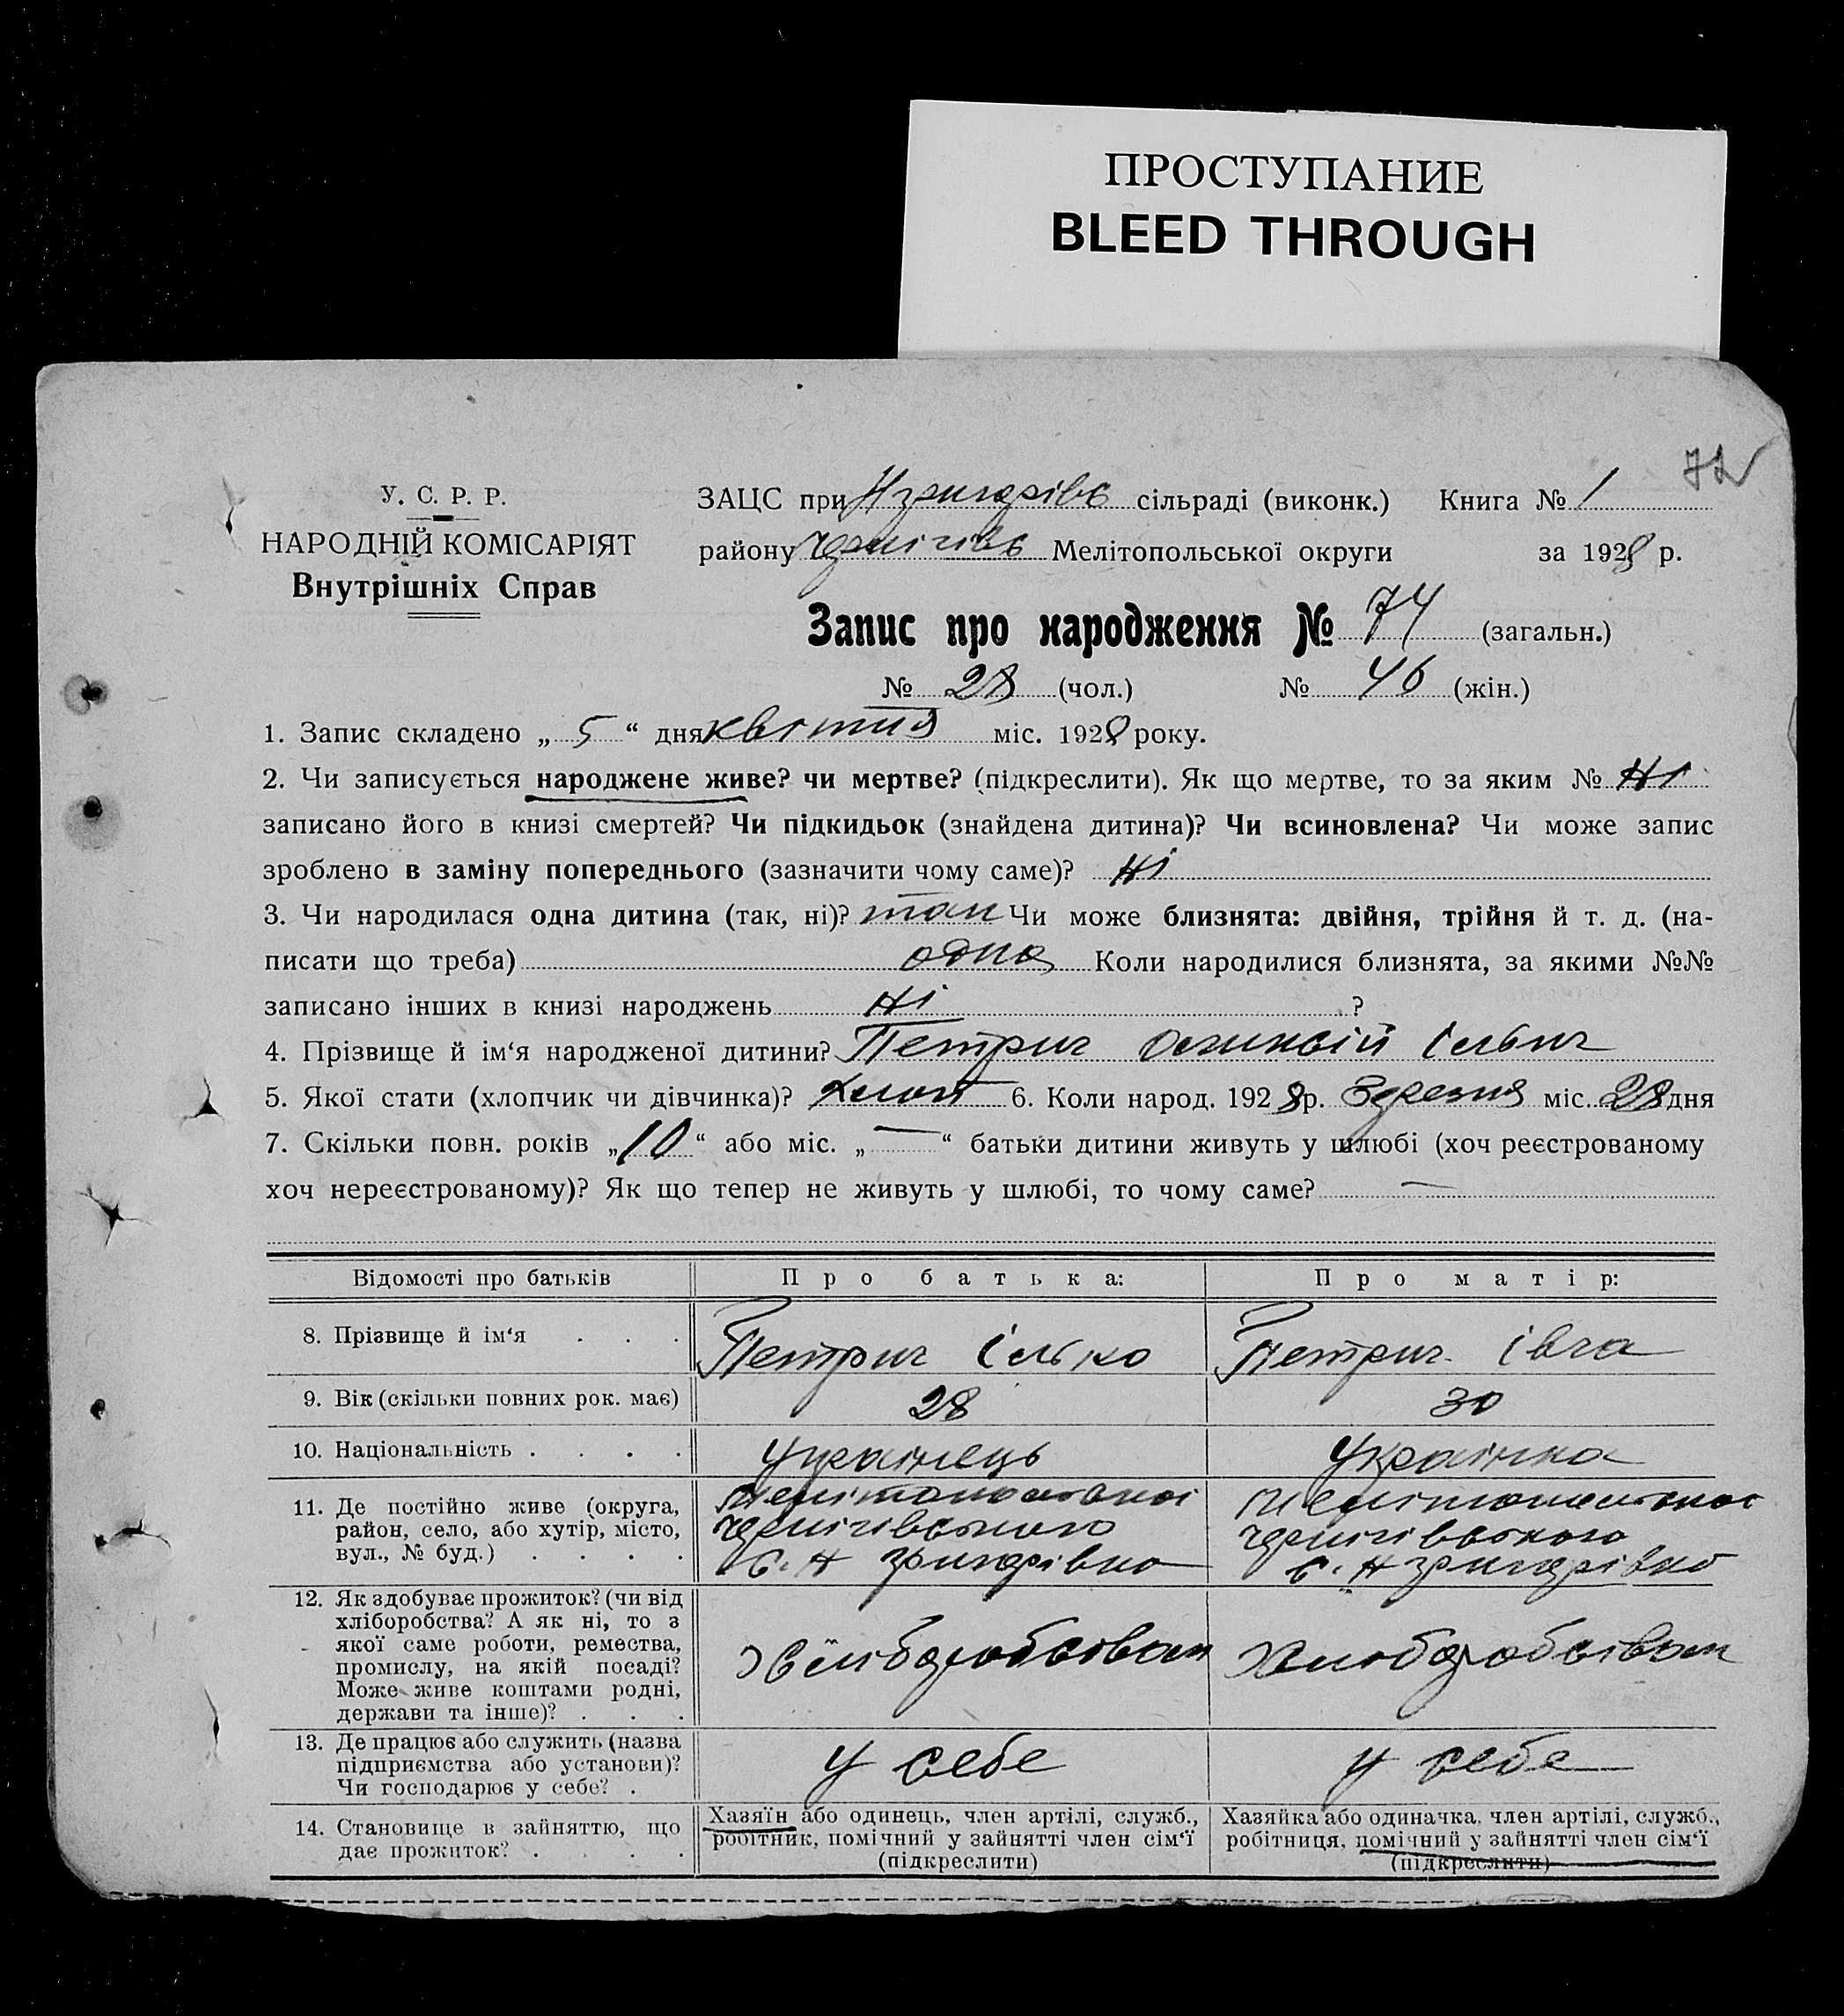 ПРОСТУПАНИЕ
BLEED THROUGH
72
У. С. Р. Р.
НАРОДНІЙ КОМІСАРІЯТ
Внутрішніх Справ
ЗАЦС при сільраді (виконк.) Книга № 1
району Чернігівс Мелітопольської округи за 1928 р.
Запис про народження № 74 (загальн.)
№ 28 (чол.) № 46 (жін.)
1. Запис складено „ 5 “ дня квітня міс. 1928 року.
2. Чи записується народжене живе? чи мертве? (підкреслити). Як що мертве, то за яким № Ні
записано його в книзі смертей? Чи підкидьок (знайдена дитина)? Чи всиновлена? Чи може запис
зроблено в заміну попереднього (зазначити чому саме)? Ні
3. Чи народилася одна дитина (так, ні)? так Чи може близнята: двійня, трійня й т. д. (на-
писати що треба) одна Коли народилися близнята, за якими №№
записано інших в книзі народжень Ні ?
4. Прізвище й ім‘я народженої дитини? Петрич Ільич
5. Якої стати (хлопчик чи дівчинка)? Хлоп 6. Коли народ. 1928 р. Березня міс. 28 дня
7. Скільки повн. років „ 10 “ або міс. „ — “ батьки дитини живуть у шлюбі (хоч реєстрованому
хоч нереєстрованому)? Як що тепер не живуть у шлюбі, то чому саме? —
Відомості про батьків Про батька: Про матір:
8. Прізвище й ім‘я . . . Петрич Ілько Петрич Івга
9. Вік (скільки повних рок. має) 28 30
10. Національність . . . . Українець Українка
11. Де постійно живе (округа,
район, село, або хутір, місто,
вул., № буд.) . . . .
Мелітопольської
Чернігівського
с. Н григорівка
Мелітопольської
Чернігівського
с. Н григорівка
12. Як здобуває прожиток? (чи від
хліборобства? А як ні, то з
якої саме роботи, ремества,
промислу, на якій посаді?
Може живе коштами родні,
держави та інше)? . . .
Хліборобсівом
Хліборобсівом
13. Де працює або служить (назва
підприємства або установи)?
Чи господарює у себе? .
У себе
У себе
14. Становище в зайняттю, що
дає прожиток? . . . .
Хазяїн або одинець, член артілі, служб.,
робітник, помічний у зайнятті член сім‘ї
(підкреслити)
Хазяйка або одиначка, член артілі, служб.,
робітниця, помічний у зайнятті член сім‘ї
(підкреслити)